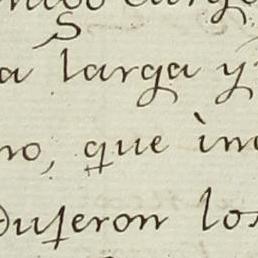 a larga y
no, que in
dujeron los